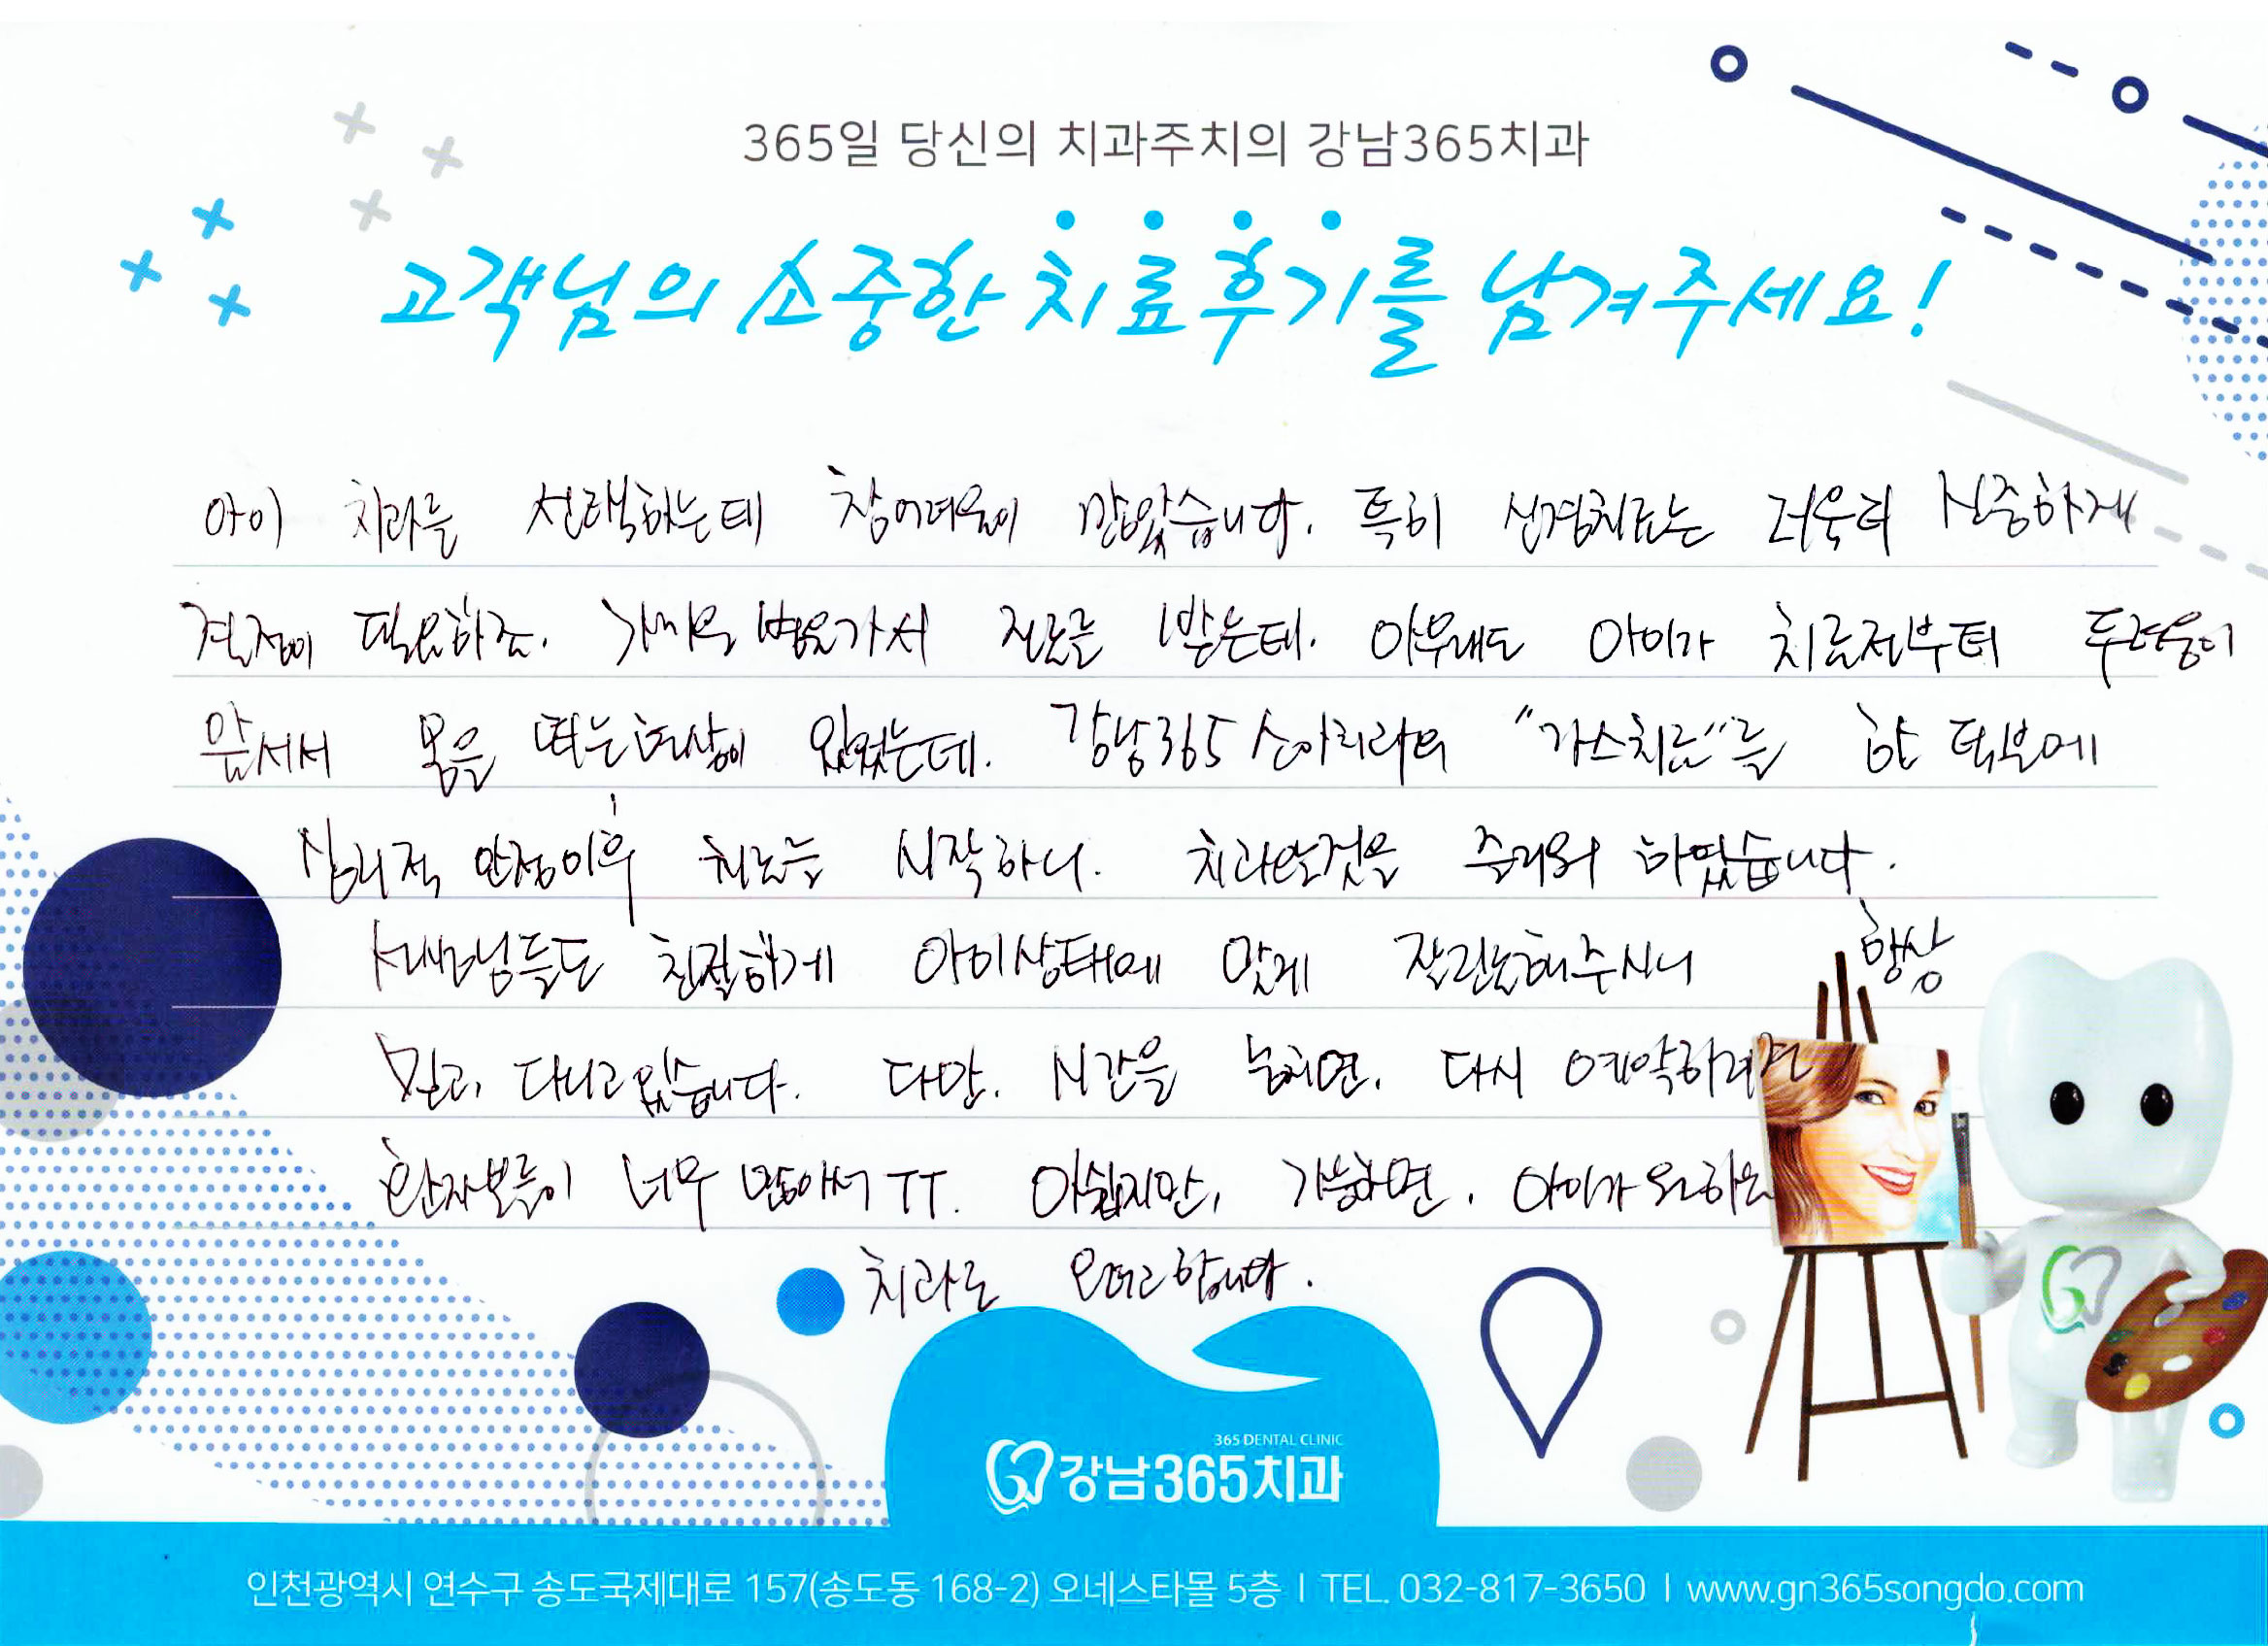 365일 당신의 치과주치의 강남365치과
고객님의 소중한 치료후기를 남겨주세요!
아이 치과를 선택하는데 참어려움이 많았습니다. 특히 신경치료는 더욱더 신중하게
결정이 필요하죠. 가까운 병원가서 진료를 받는데. 아무래도 아이가 치료전부터 두려움이
앞서서 몸을 떠는현상이 있었는데. 강남365 소아치과의 "가스치료"를 한 덕분에
심리적 안정이후 치료를 시작하니. 치과오는것을 즐거워 하였습니다.
선생님들도 친절하게 아이상태에 맞게 잘진료해주시니 항상
믿고, 다니고있습니다. 다만. 시간을 놓치면. 다시 예약하려면
환자분들이 너무 많아서 TT. 아쉽지만, 가능하면. 아이가 원하는
치과로 오려고합니다.
365 DENTAL CLINIC
강남365치과
인천광역시 연수구 송도국제대로 157(송도동 168-2) 오네스타몰 5층 I TEL. 032-817-3650 I www.gn365songdo.com